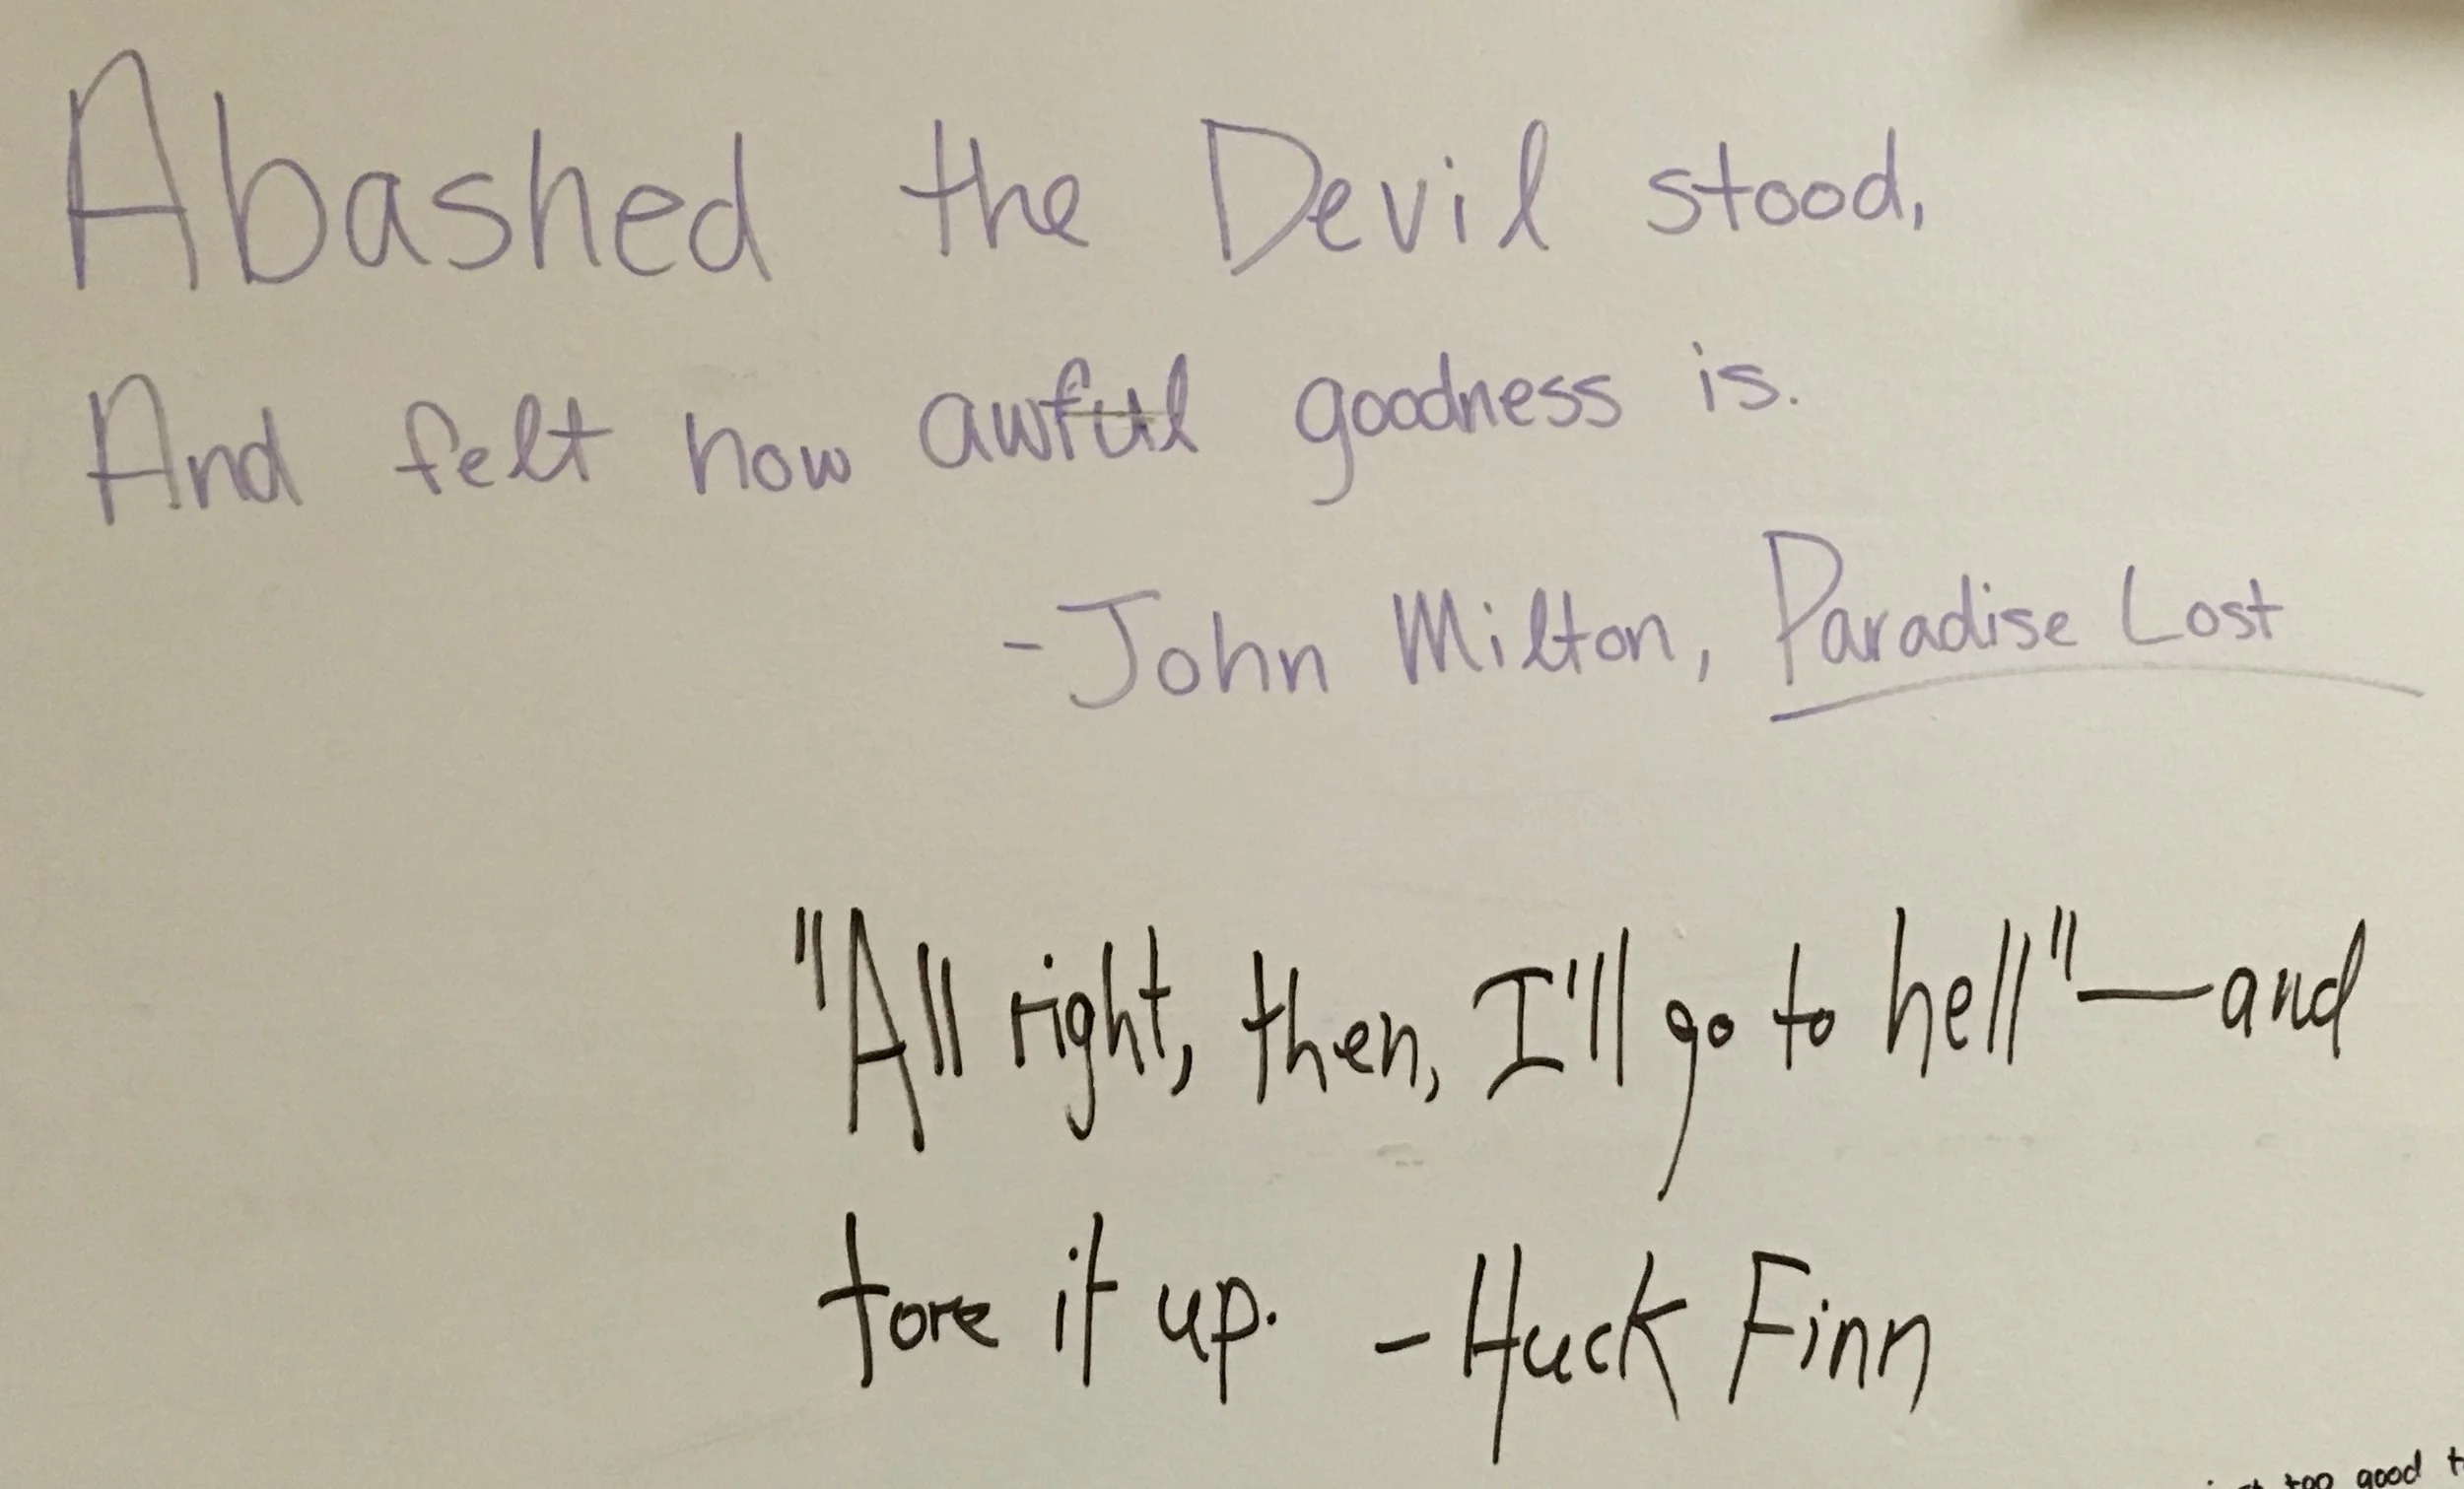 Abashed the Devil stood,
And felt how awful goodness is.
-John Milton, Paradise Lost
"All right, then, I'll go to hell"—and
tore it up. -Huck Finn
too good